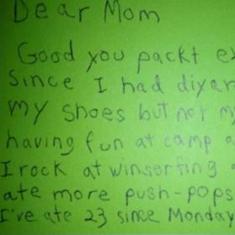 Dear Mom
Good you packt ex
Since I had diyar
my shoes but not my
having fun at camp a
I rock at winserfing
ate more push-pops
I've ate 23 since Monday